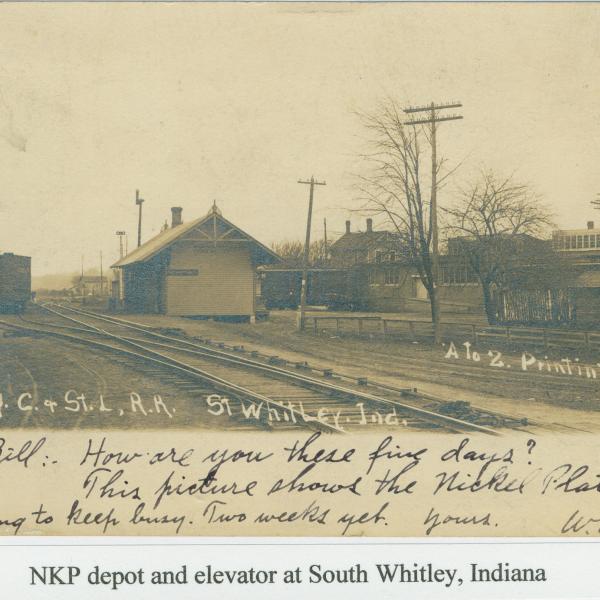 A to Z. Printin
C. & St. L, R.R. So Whitley, Ind.
Bill:- How are you these fine days?
This picture shows the Nickel Pla
to keep busy. Two weeks yet. Yours.
NKP depot and elevator at South Whitley, Indiana